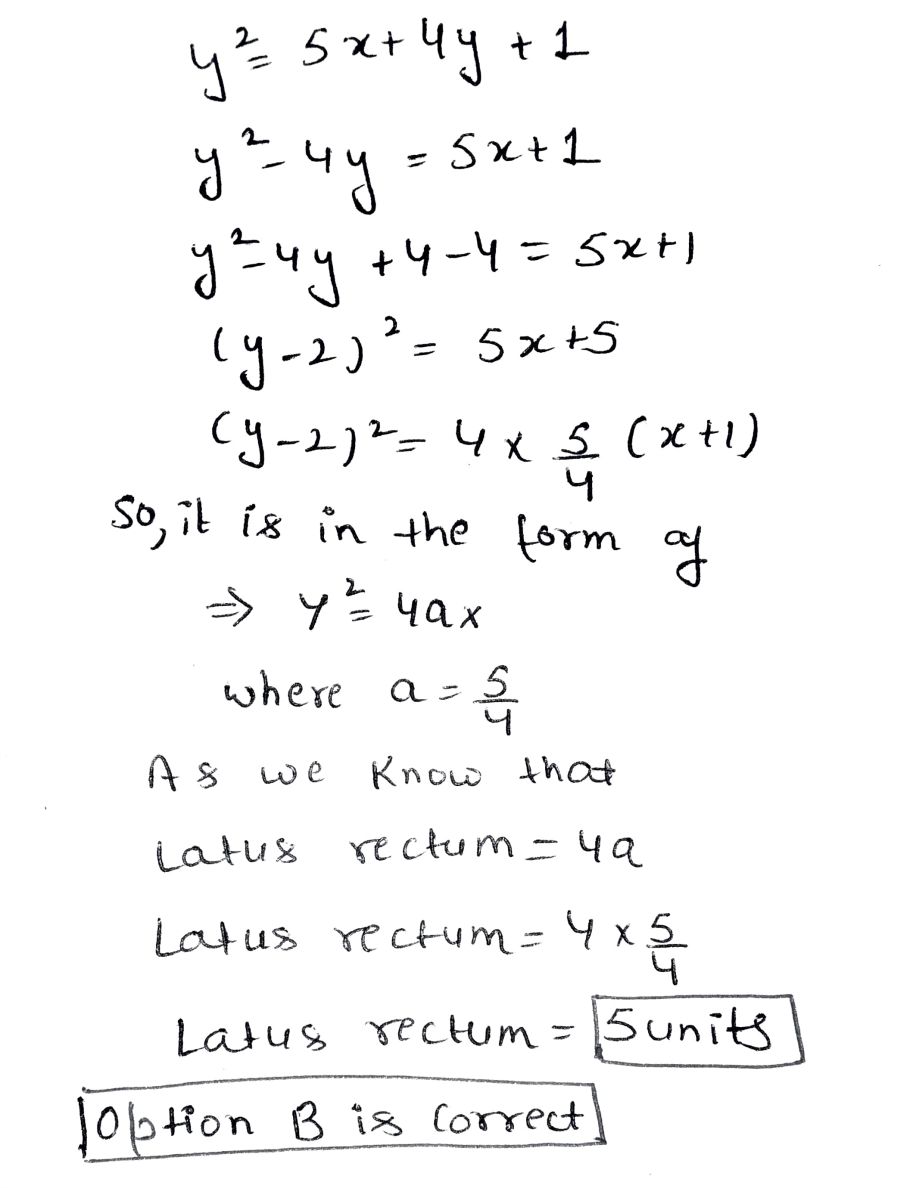 y² = 5x + 4y + 1
y² - 4y = 5x + 1
y² - 4y + 4 - 4 = 5x + 1
(y - 2)² = 5x + 5
(y - 2)² = 4 x 5/4 (x + 1)
So, it is in the form of
⇒ y² = 4ax
where a = 5/4
As we know that
Latus rectum = 4a
Latus rectum = 4 x 5/4
Latus rectum = 5 units
Option B is correct